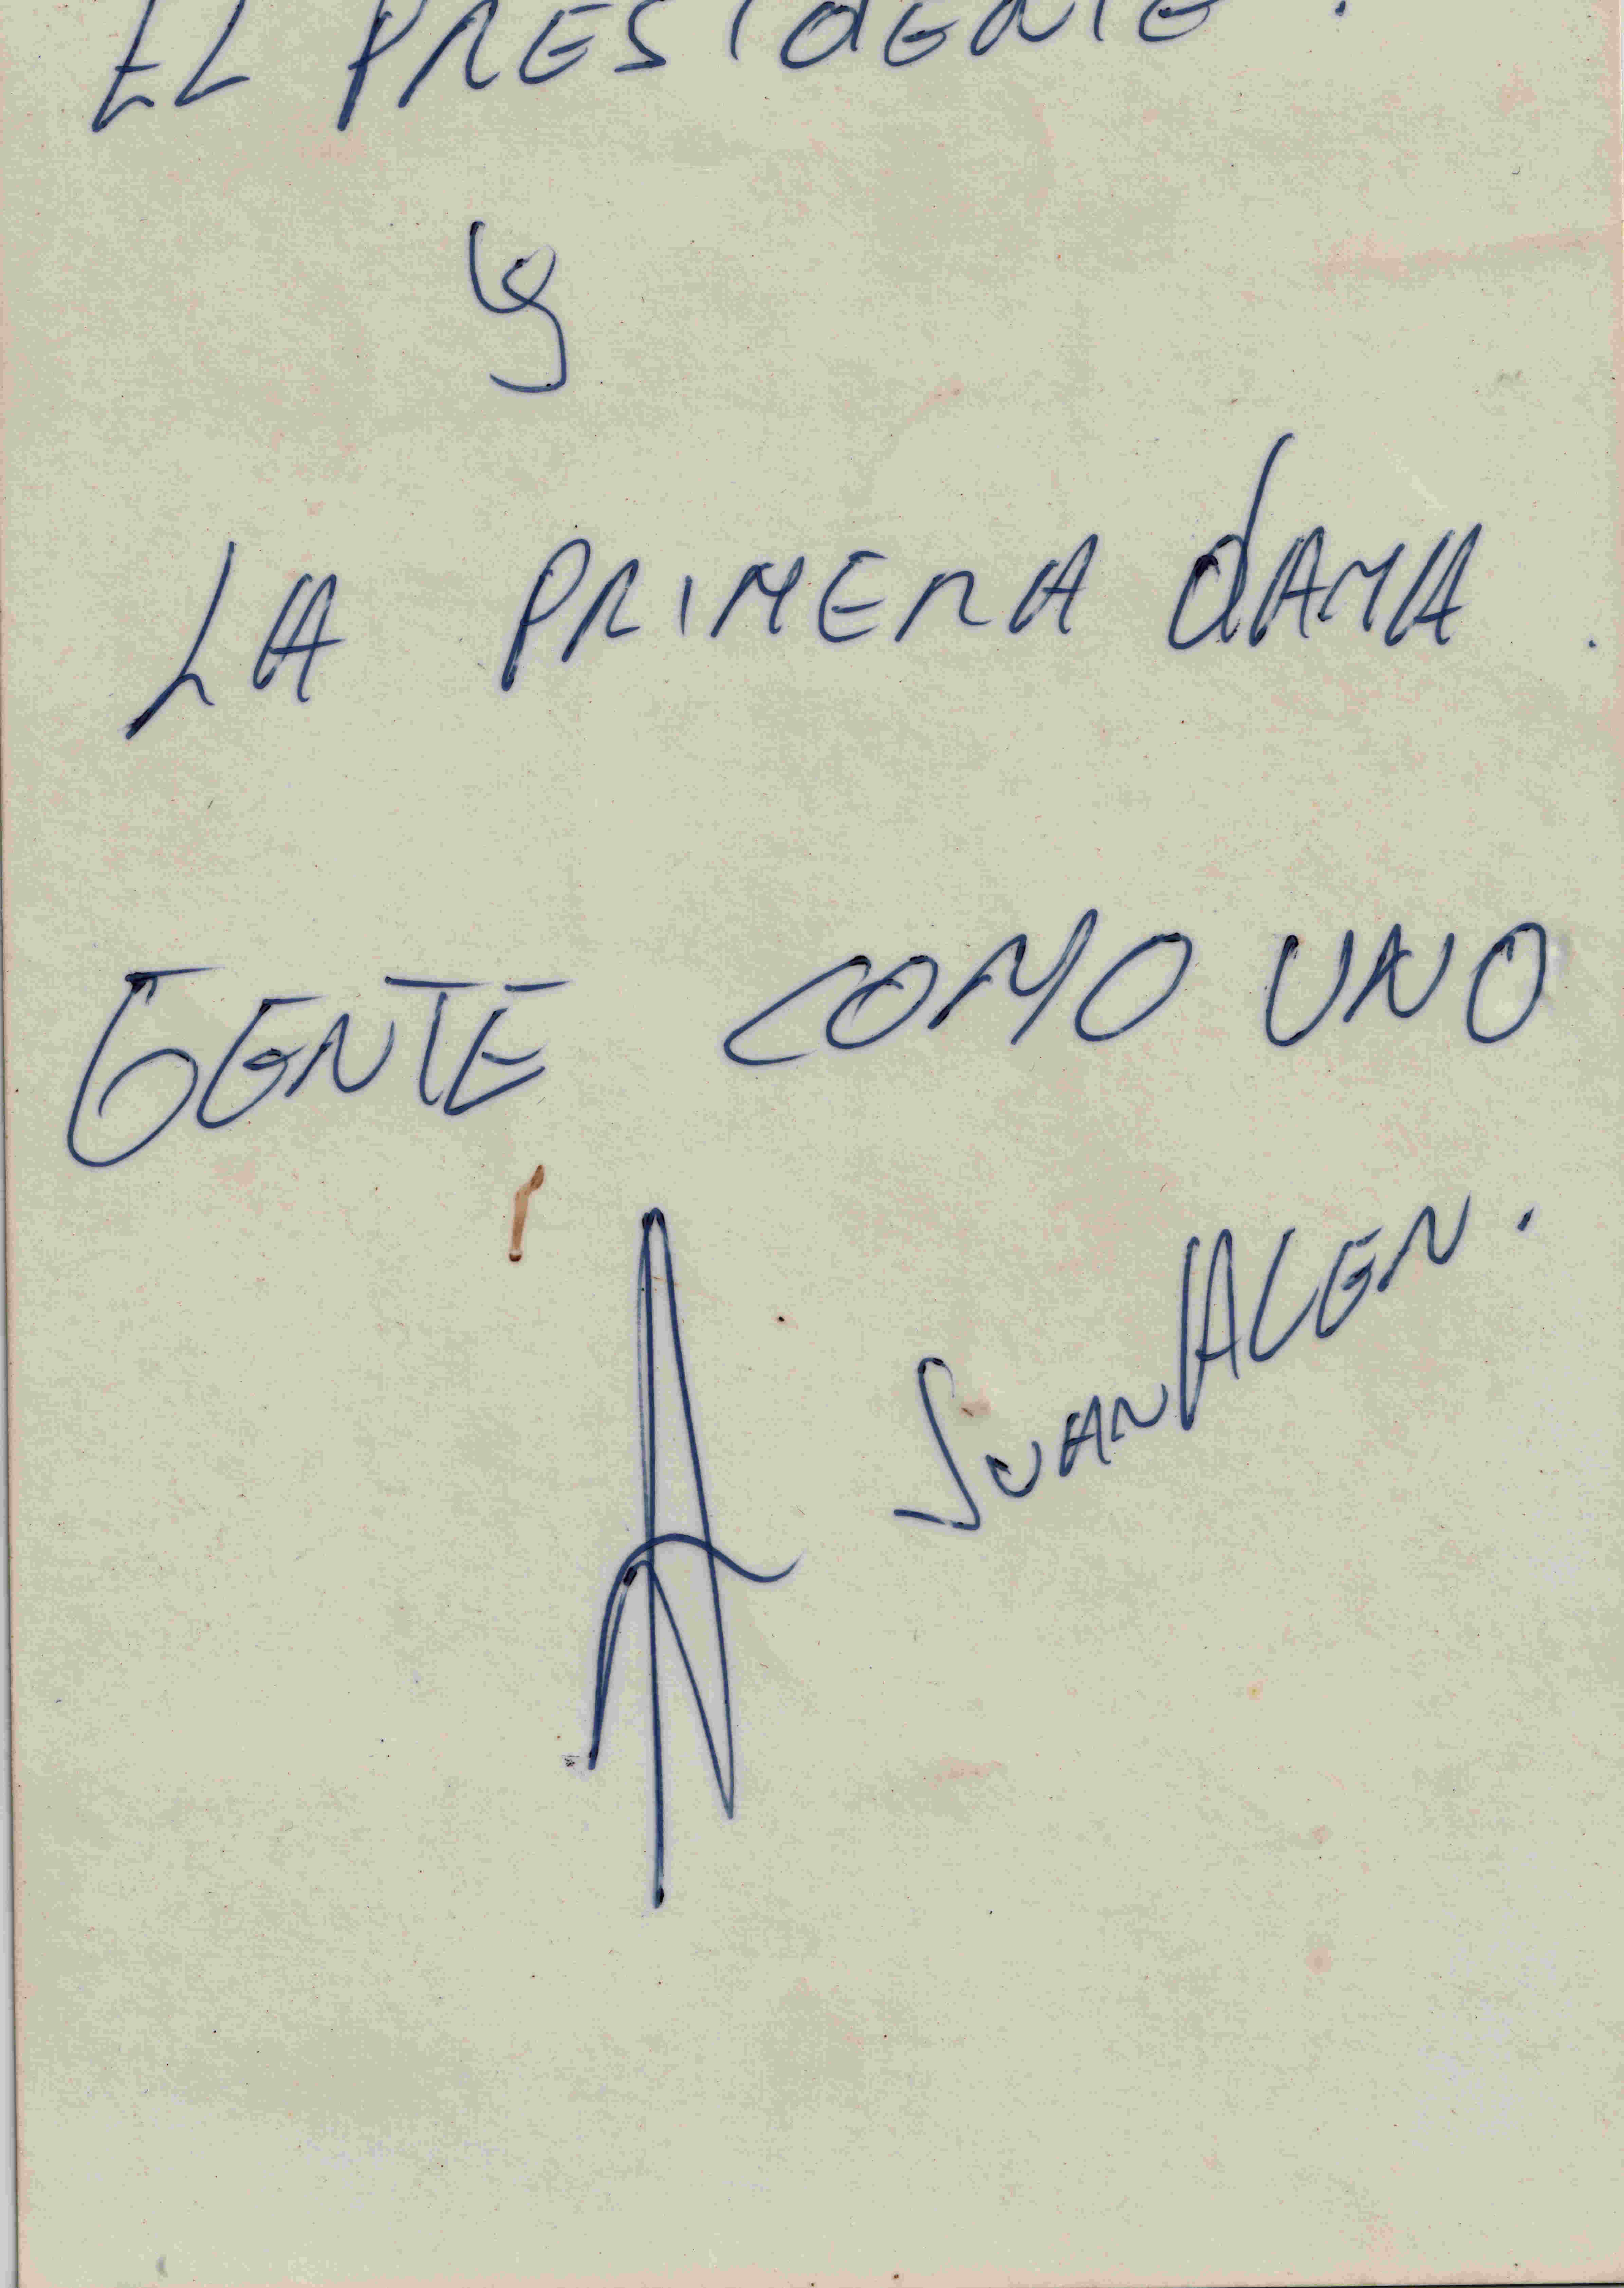 EL PRESIDENTE.
y
LA PRIMERA dAMA.
GENTE COMO UNO
JUAN ALEN.